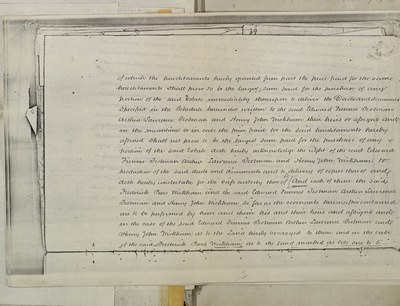 of which the hereditaments hereby granted form part the price paid for the same
hereditaments shall prove to be the largest sum paid for the purchase of any
portion of the said Estate immediately thereupon to deliver the documents
specified in the Schedule hereunder written to the said Edward Francis
Arthur Lawrence and Henry John Wickham their heirs or assigns and
in the meantime or in case the sum paid for the said hereditaments hereby
shall not prove to be the largest sum paid for the purchase of any
portion of the said Estate doth hereby acknowledge the right of the said Edward
Francis Arthur Lawrence and Henry John Wickham to
production of the said deeds and documents and to delivery of copies thereof and
doth hereby undertake for the safe custody thereof And each of them the said
Frederick Wickham and the said Edward Francis Arthur Lawrence
and Henry John Wickham so far as the covenants hereinafter contained
are to be performed by them and their heirs and assigns and
in the case of the said Edward Francis Arthur Lawrence and
Henry John Wickham as to the Land hereby conveyed to them and in the case
of the said Frederick Wickham as to the land marked as lots one to